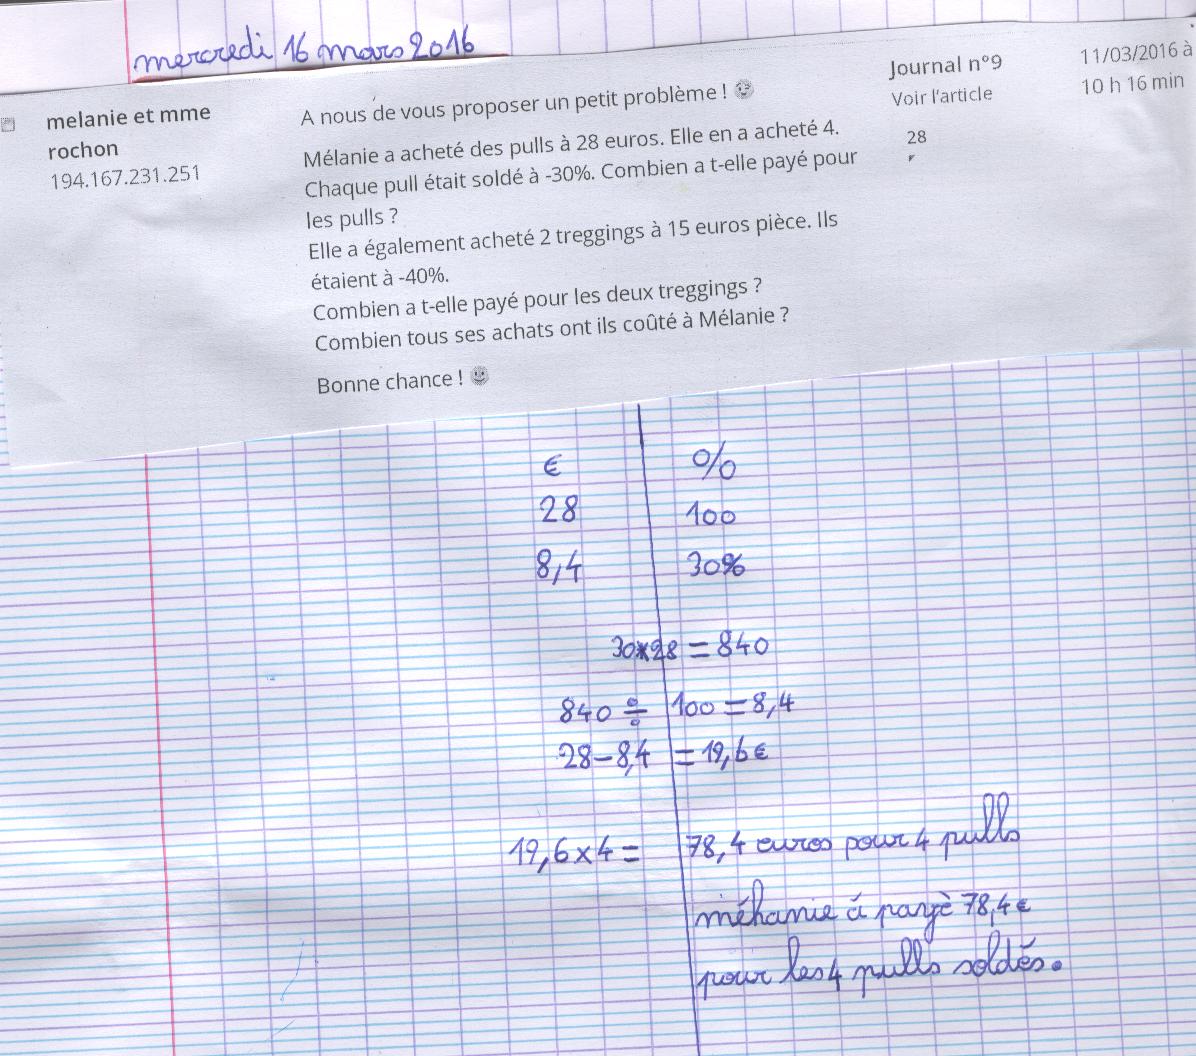 mercredi 16 mars 2016
melanie et mme
rochon
194.167.231.251
A nous de vous proposer un petit problème !
Mélanie a acheté des pulls à 28 euros. Elle en a acheté 4.
Chaque pull était soldé à -30%. Combien a t-elle payé pour
les pulls ?
Elle a également acheté 2 treggings à 15 euros pièce. Ils
étaient à -40%.
Combien a t-elle payé pour les deux treggings ?
Combien tous ses achats ont ils coûté à Mélanie ?
Bonne chance !
Journal n°9
Voir l'article
28
11/03/2016 à
10 h 16 min
€ %
28 100
8,4 30%
30×28 = 840
840 ÷ 100 = 8,4
28-8,4 = 19,6€
19,6 × 4 = 78,4 euros pour 4 pulls
méhanie á payè 78,4€
pour les 4 pulls soldés.